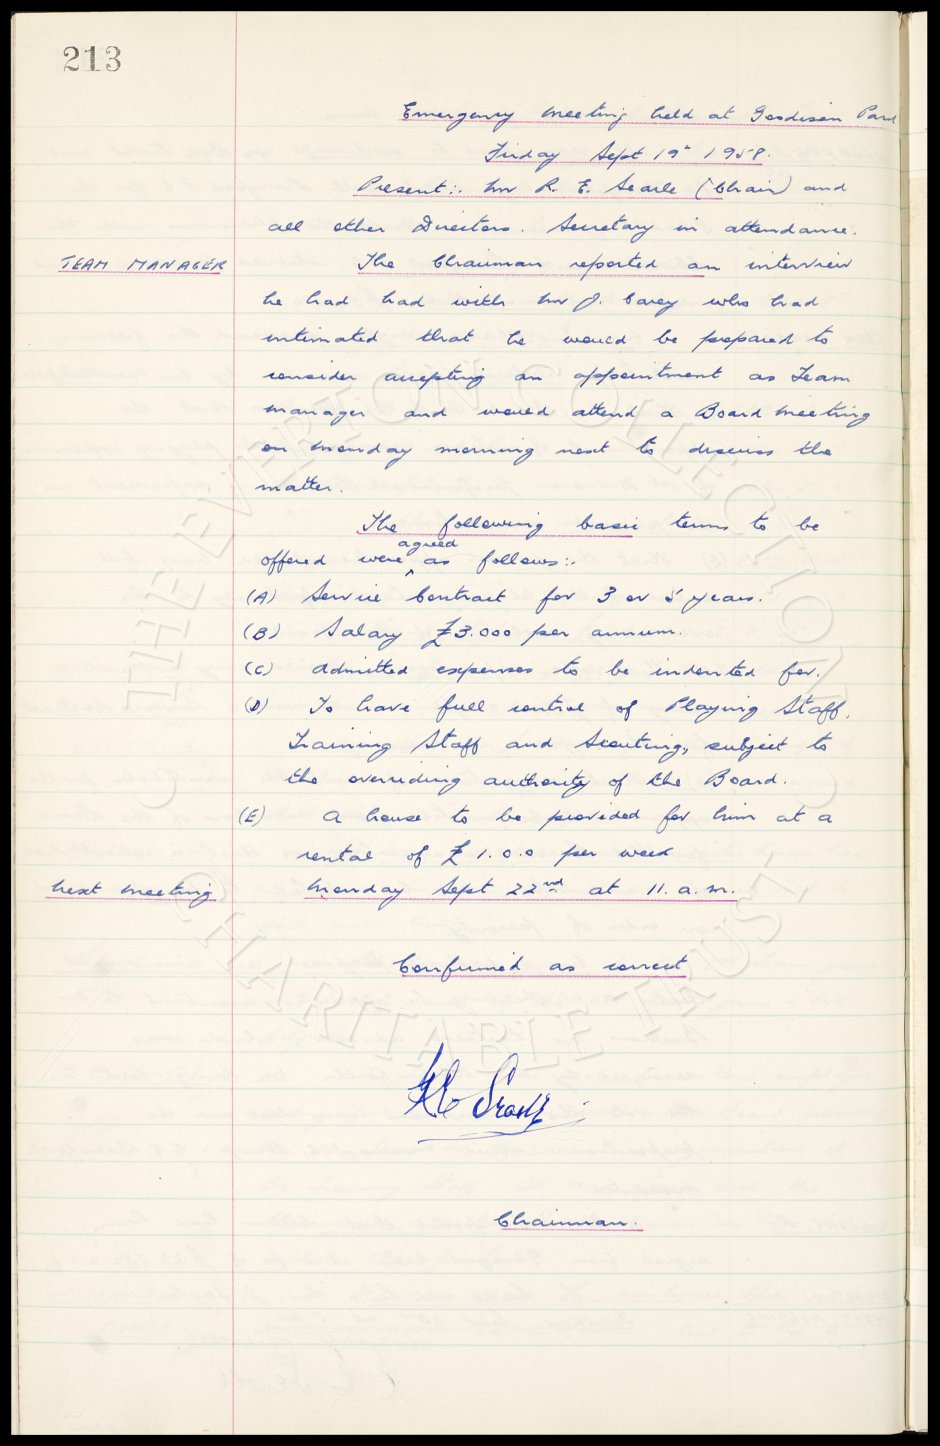 213
Emergency Meeting held at Goodison Park
Friday Sept 19th 1958.
Present:. Mr R. E. Searle (Chair) and
all other Directors. Secretary in attendance.
TEAM MANAGER The Chairman reported an interview
he had had with Mr J. Carey who had
intimated that he would be prepared to
consider accepting an appointment as Team
Manager and would attend a Board Meeting
on Monday morning next to discuss the
matter.
The following basic terms to be
agreed
offered were ^ as follows:.
(A) Service Contract for 3 or 5 years.
(B) Salary £3.000 per annum.
(C) Admitted expenses to be indented for.
(D) To have full control of Playing Staff,
Training Staff and Scouting, subject to
the overriding authority of the Board.
(E) A house to be provided for him at a
rental of £1.0.0 per week
Next Meeting Monday Sept 22nd at 11.a.m.
Confirmed as correct
Chairman.
THE EVERTON COLLECTION
CHARITABLE TRUST